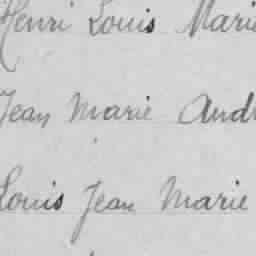 Henri Louis Marie
Jean Marie Andr
Louis Jean Marie